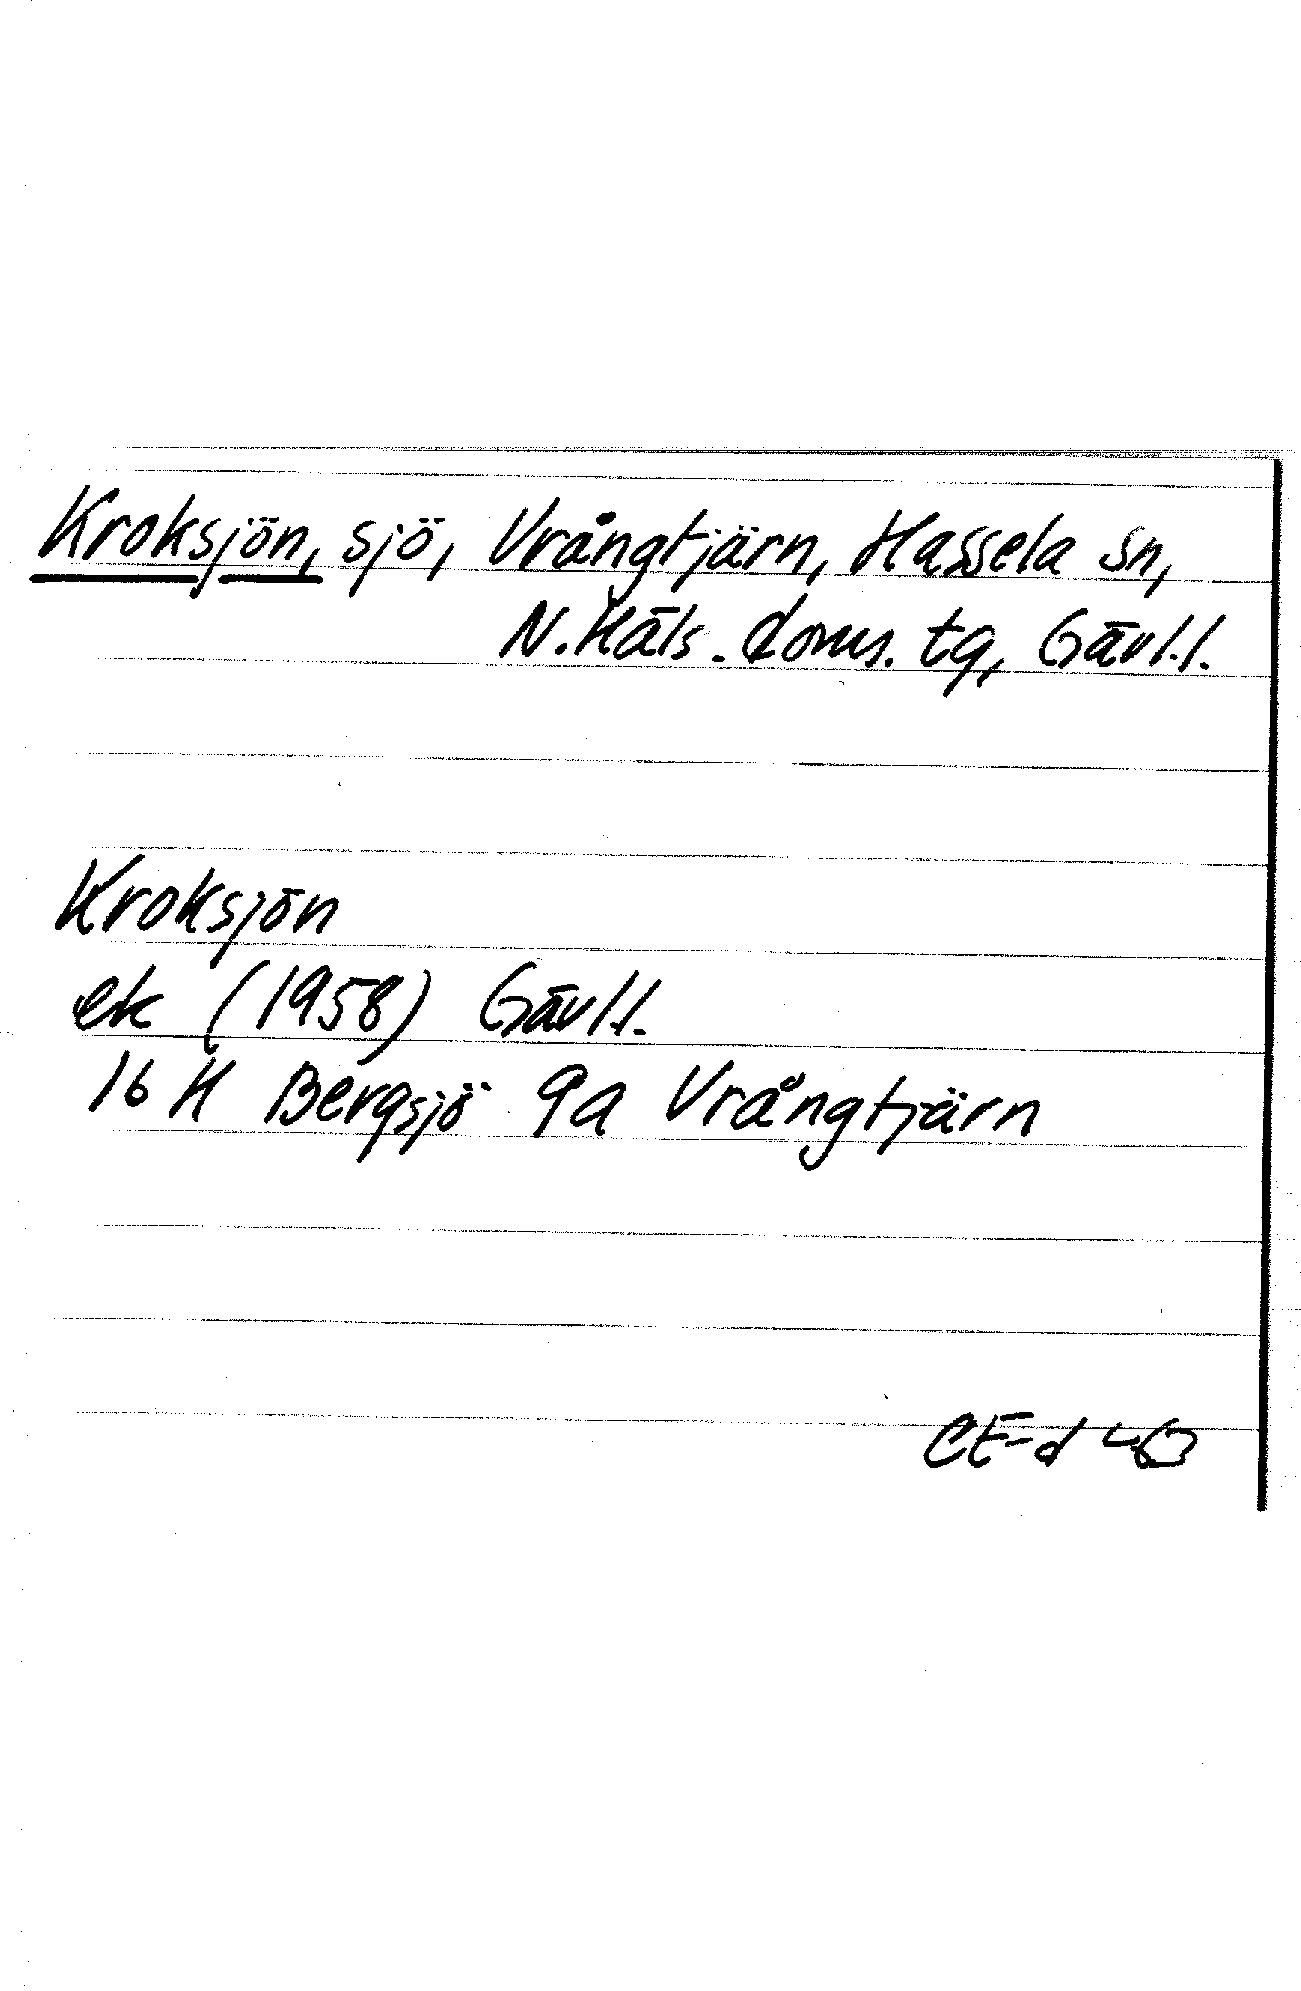 Kroksjön, sjö, Vrångtjärn, Hassela sn,
N. Häls. doms. tg, Gävl.l.
Kroksjön
ek (1958) Gävl.l.
16 H Bergsjö 9a Vrångtjärn